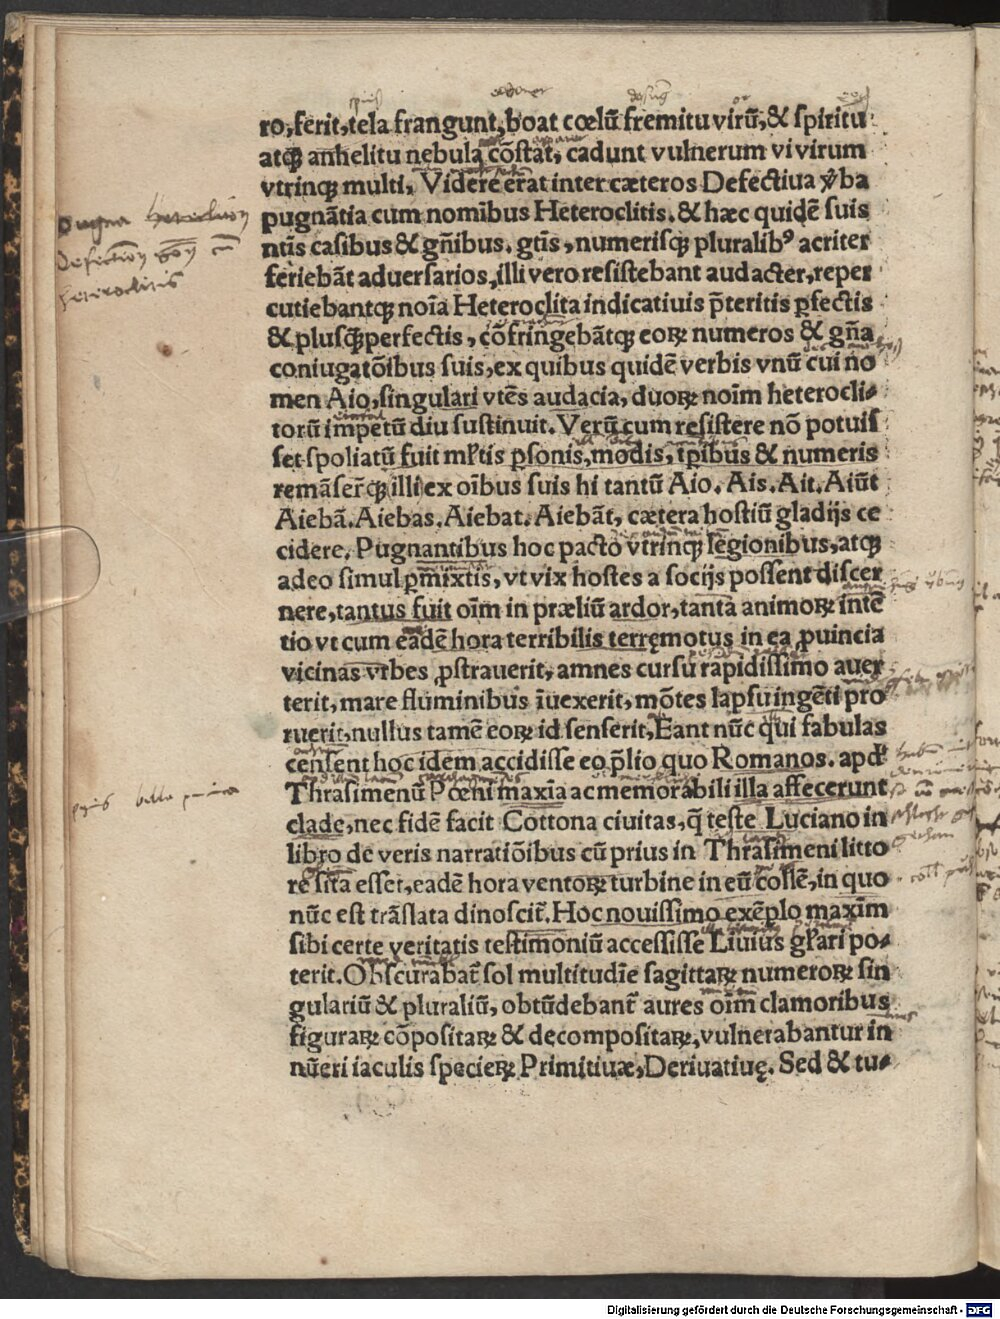 ro, ferit, tela frangunt, boat cœlũ fremitu virũ, & spiritu
atqꝫ anhelitu nebula cõstat, cadunt vulnerum vi virum
vtrinqꝫ multi, Videre erat inter cæteros Defectiua v̾ba
pugnãtia cum nomĩbus Heteroclitis. & hæc quidẽ suis
nũs casibus & gñibus. gtĩs, numerisqꝫ pluralibꝰ acriter
feriebãt aduersarios, illi vero resistebant audacter, reper
cutiebantqꝫ noĩa Heteroclita indicatiuis p̃teritis ꝑfectis
& plusqꝫperfectis, cõfringebãtqꝫ eoꝝ numeros & gña
coniugatõibus suis, ex quibus quidẽ verbis vnũ cui no
men Aio, singulari vtẽs audacia, duoꝝ noĩm heterocli⸗
torũ impetũ diu sustinuit. Verũ cum resistere nõ potuis
set spoliatũ fuit ml̃tis ꝑsonis, modis, tp̃ibus & numeris
remãser̃tqꝫ illi ex oĩbus suis hi tantũ Aio. Ais. Ait. Aiũt
Aiebã. Aiebas. Aiebat. Aiebãt, cætera hostiũ gladijs ce
cidere. Pugnantibus hoc pacto vtrinqꝫ legionibus, atqꝫ
adeo simul ꝑmixtis, vt vix hostes a socijs possent discer
nere, tantus fuit oĩm in præliũ ardor, tanta animoꝝ intẽ
tio vt cum eadẽ hora terribilis terręmotus in ea ꝓuincia
vicinas vrbes ꝓstrauerit, amnes cursu rapidissimo auer
terit, mare fluminibus ĩuexerit, mõtes lapsu ingẽti pro
ruerit, nullus tamẽ eoꝝ id senserit, Eant nũc qui fabulas
censent hoc idem accidisse eo p̃lio quo Romanos. apđ
Thrasimenũ Pœni maxĩa ac memorabili illa affecerunt
clade, nec fidẽ facit Cottona ciuitas, q̃ teste Luciano in
libro de veris narratiõibus cũ prius in Thrasimeni litto
re sita esset, eadẽ hora ventoꝝ turbine in eũ collẽ, in quo
nũc est trãslata dinoscit̃. Hoc nouissimo exẽplo maxĩm
sibi certe veritatis testimoniũ accessisse Liuius gl̃ari po⸗
terit. Obscurabat̃ sol multitudĩe sagittaꝝ numeroꝝ sin
gulariũ & pluraliũ, obtũdebant̃ aures oĩm clamoribus
figuraꝝ cõpositaꝝ & decompositaꝝ, vulnerabantur in
nũeri iaculis specieꝝ Primitiuæ, Deriuatiuę. Sed & tu⸗
Digitalisierung gefördert durch die Deutsche Forschungsgemeinschaft - DFG